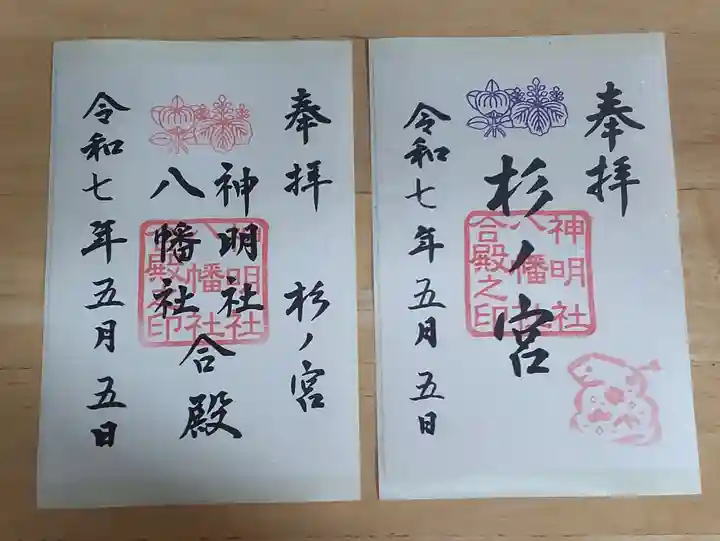 奉拝
杉ノ宮
神明社
八幡社
合殿
令和七年五月五日
神明社
八幡社
合殿之印
奉拝
杉ノ宮
令和七年五月五日
神明社
八幡社
合殿之印